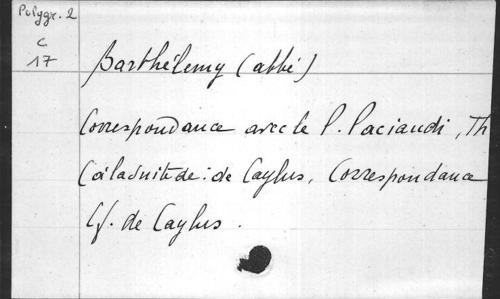 Polygr. 2
C
17
Barthélemy (abbé)
Correspondance avec le P. Paciaudi, Th
(à la suite de : de Caylus, Correspondance
Cf. de Caylus.